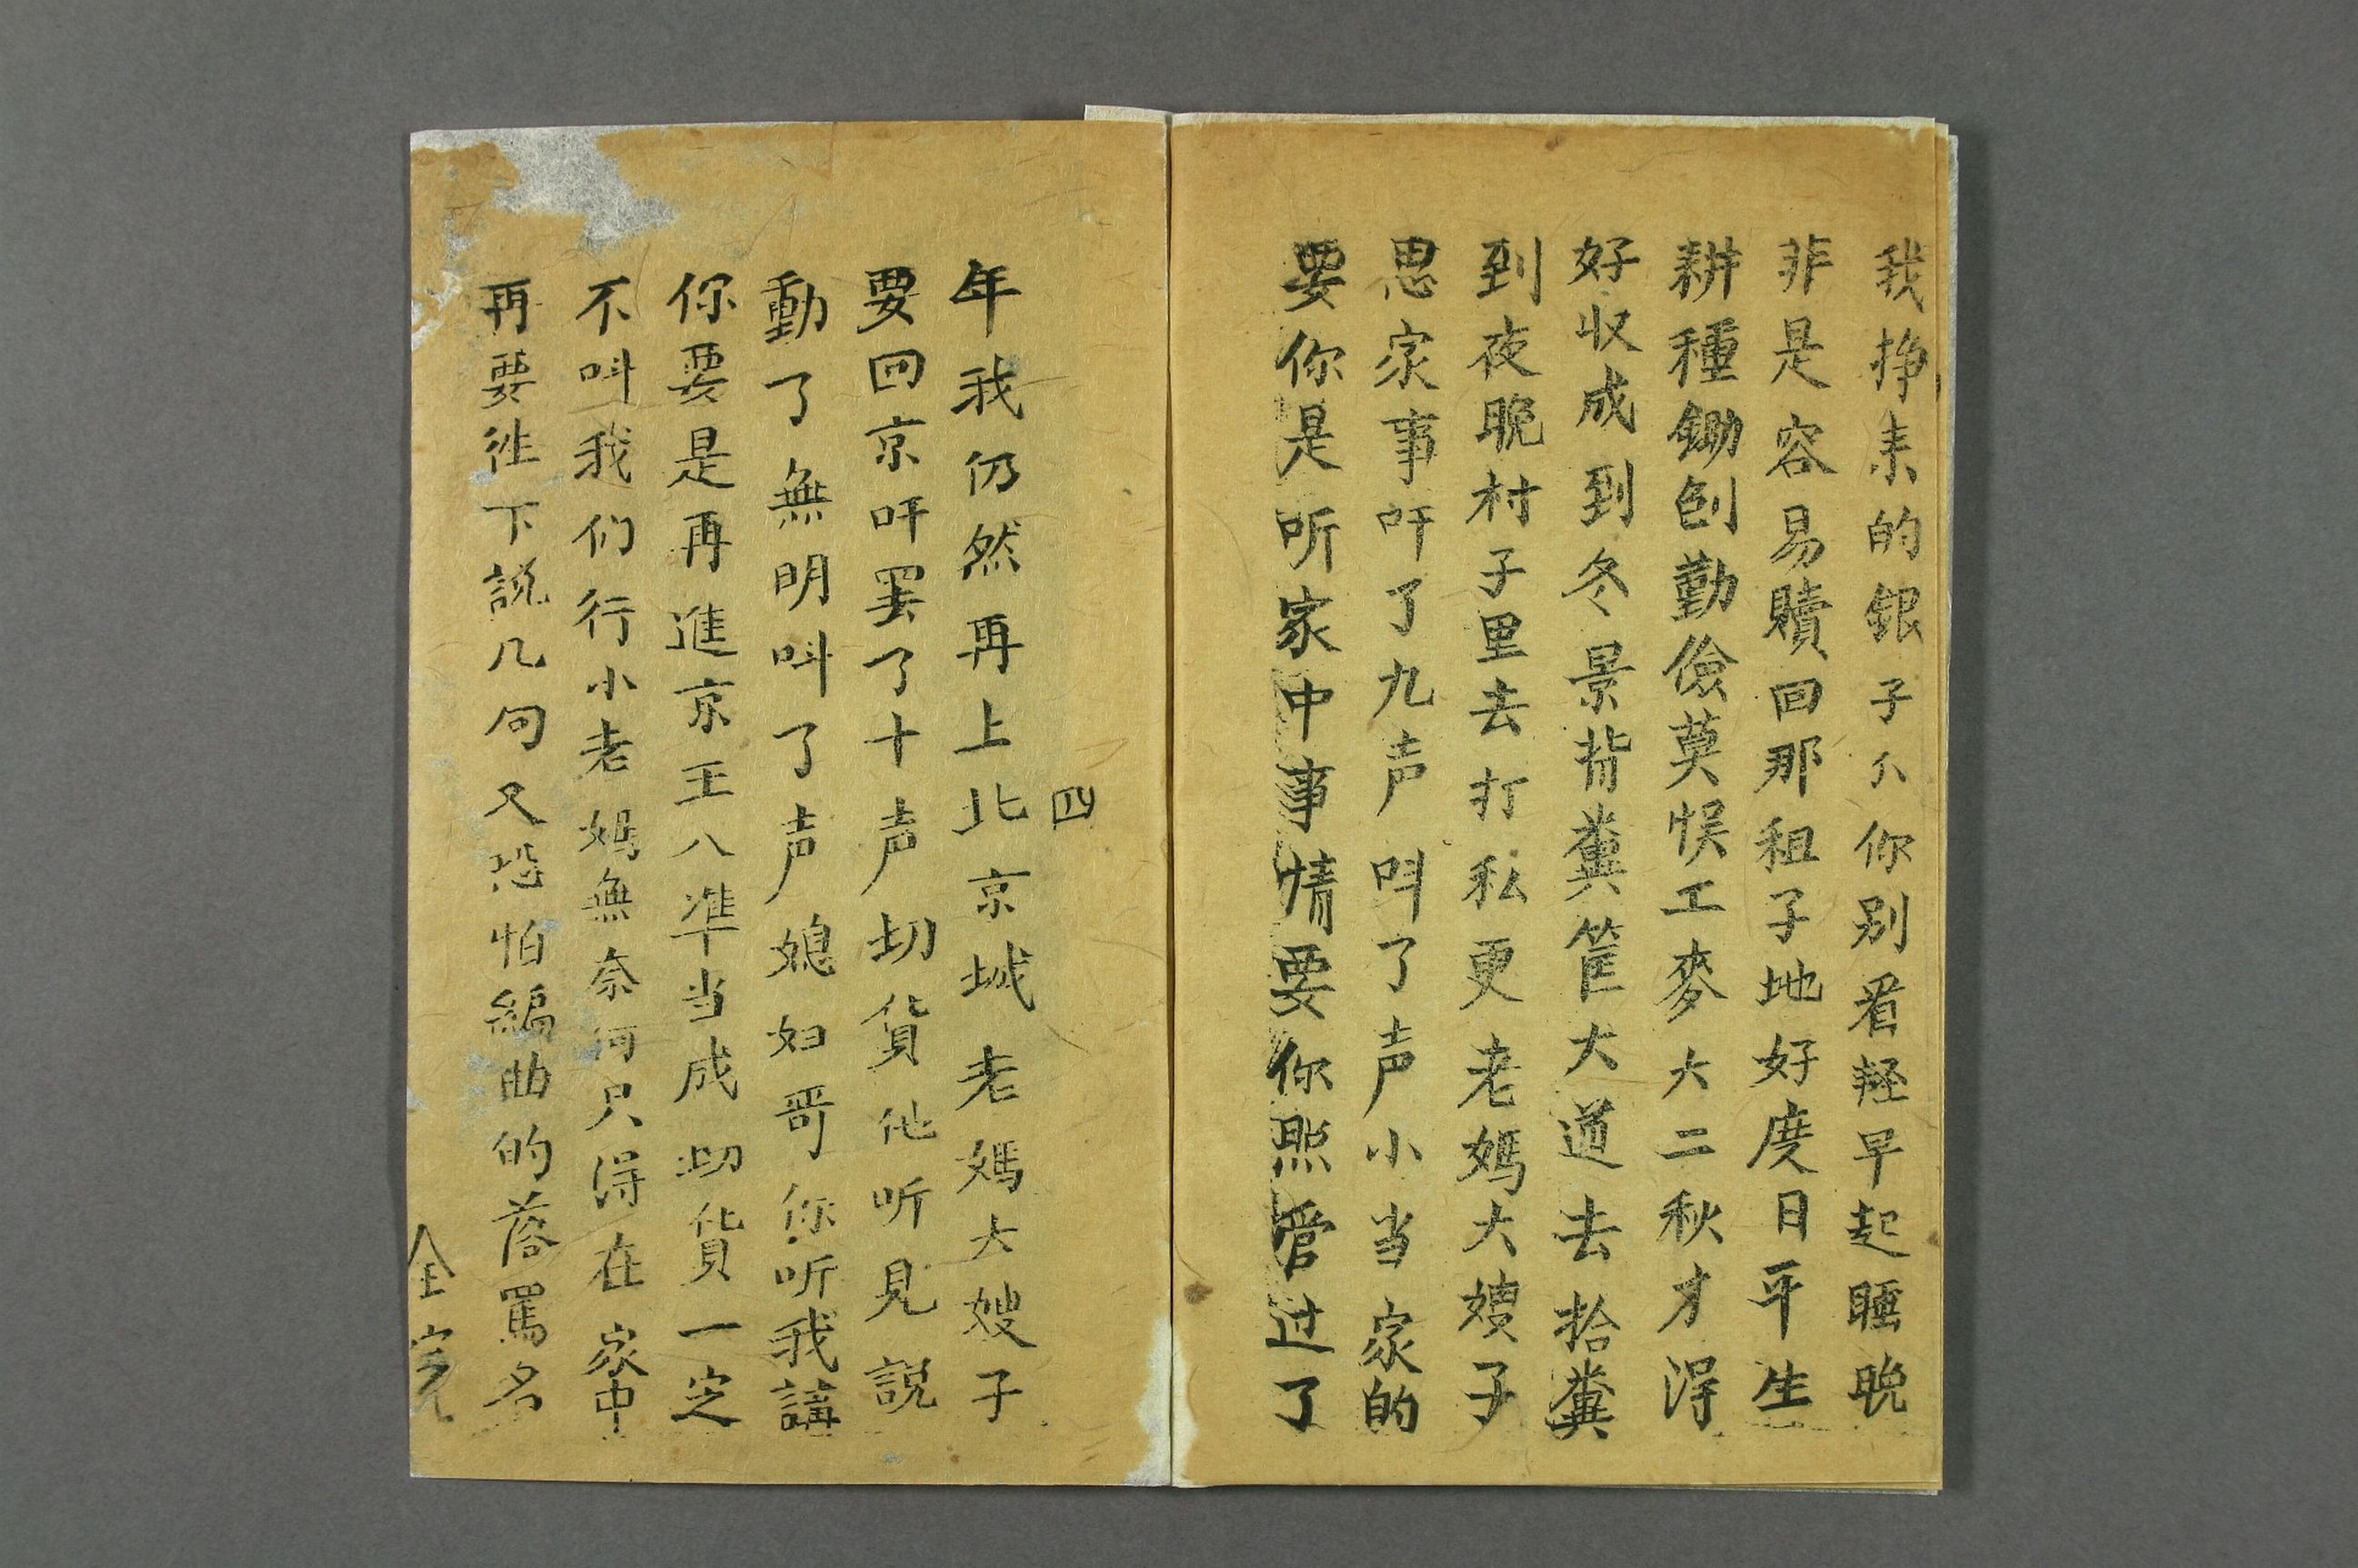 我挣耒的银子仌你别看轻早起睡晚
非是容易贖回那租子地好度日平生
耕種鋤刨勤儉莫悞工麥大二秋才淂
好收成到冬景背糞筐大道去拾糞
到夜晚村子里去打私更老媽大嫂子
思家事吁了九声叫了声小当家的
要你是听家中事情要你照管过了
四
年我仍然再上北京城老媽大嫂子
要回京吁罢了十声刼貨他听見説
動了無明叫了声媳妇哥你听我講
你要是再進京王八準当成刼貨一定
不叫我们行小老媽無奈何只淂在家中
再要徃下説几句又恐怕編曲的落罵名
全完